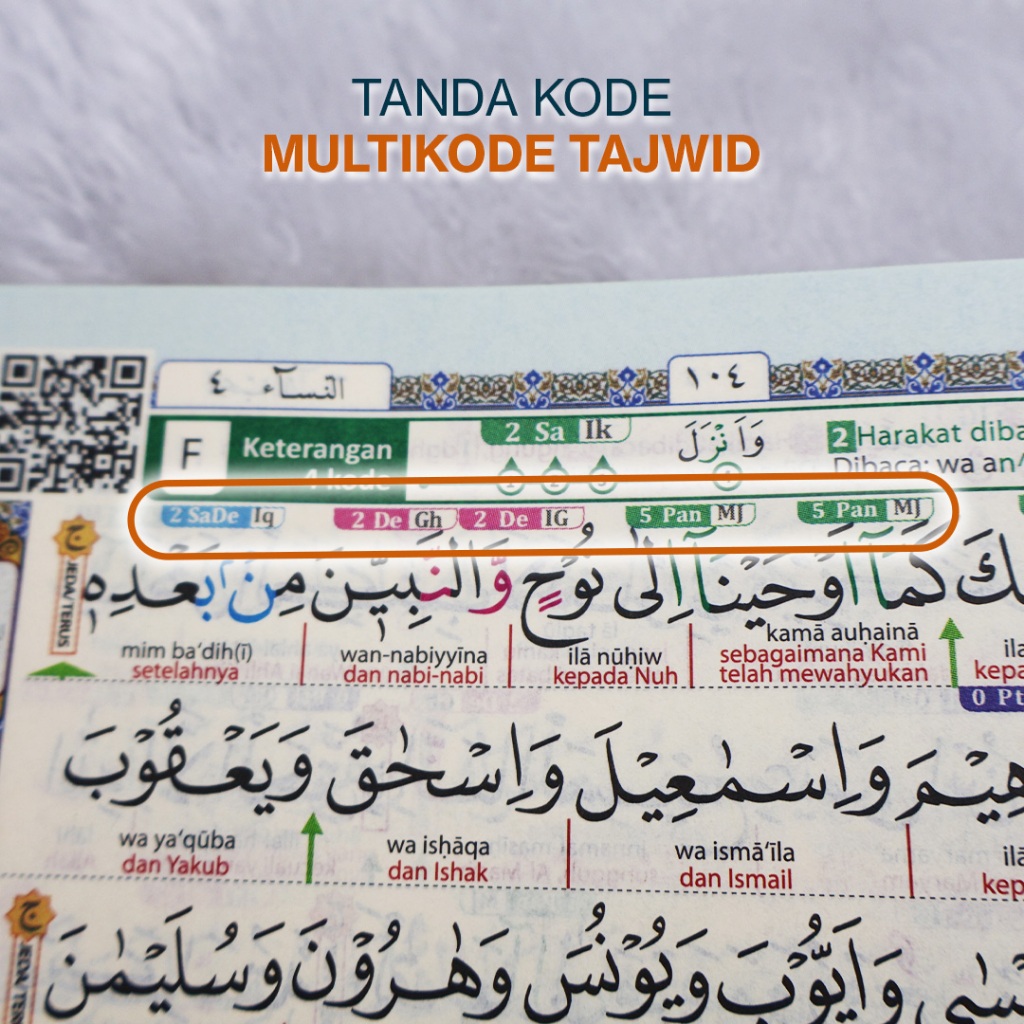 TANDA KODE
MULTIKODE TAJWID
النسآء ٤
١٠٤
F Keterangan 2 Sa Ik وَاَنْزَلَ 2 Harakat diba
4 kode 1 2 3 1 Dibaca: wa an
2 SaDe Iq 2 De Gh 2 De IG 5 Pan MJ 5 Pan MJ
كَمَآ اَوْحَيْنَآ اِلٰى نُوْحٍ وَّالنَّبِيّٖنَ مِنْۢ بَعْدِهٖ
JEDA/TERUS
kamā auḥainā ilā nūḥiw wan-nabiyyīna mim ba‘dih(ī)
sebagaimana Kami telah mewahyukan kepada Nuh dan nabi-nabi setelahnya
0 Pt
وَاِسْمٰعِيْلَ وَاِسْحٰقَ وَيَعْقُوْبَ
wa ismā‘īla wa isḥāqa wa ya‘qūba
dan Ismail dan Ishak dan Yakub
ج
وَاَيُّوْبَ وَيُوْنُسَ وَهٰرُوْنَ وَسُلَيْمٰنَ